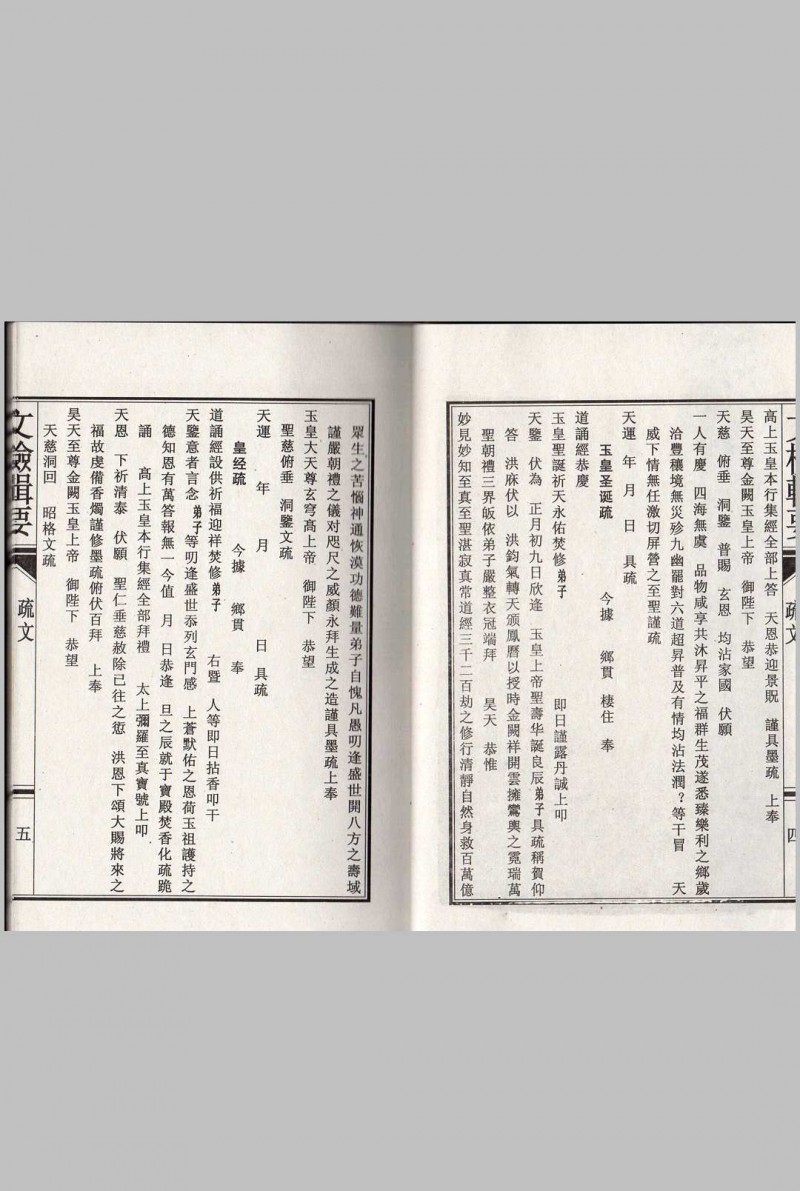 高上玉皇本行集經全部上答　天恩恭迎景貺　謹具墨疏　上奉
昊天至尊金闕玉皇上帝　御陛下　恭望
天慈　俯垂　洞鑒　普賜　玄恩　均沾家國　伏願
一人有慶　四海無虞　品物咸享共沐昇平之福群生茂遂悉臻樂利之鄉歲
洽豐穰境無災殄九幽罷對六道超昇普及有情均沾法潤？等干冒　天
威下情無任激切屏營之至聖謹疏
天運　年　月　日　具疏
玉皇圣诞疏　今據　鄉貫　棲住　奉
道誦經恭慶
玉皇聖誕祈天永佑焚修弟子　即日謹露丹誠上叩
天鑒　伏為　正月初九日欣逢　玉皇上帝聖壽华誕良辰弟子具疏稱賀仰
答　洪庥伏以　洪鈞氣轉天頒鳳曆以授時金闕祥開雲擁鸞輿之霓瑞萬
聖朝禮三界皈依弟子嚴整衣冠端拜　昊天　恭惟
妙見妙知至真至聖湛寂真常道經三千二百劫之修行清靜自然身救百萬億
疏文
四
眾生之苦惱神通恢漠功德難量弟子自愧凡愚叨逢盛世開八方之壽域
謹嚴朝禮之儀对咫尺之威顏永拜生成之造謹具墨疏上奉
玉皇大天尊玄穹高上帝　御陛下　恭望
聖慈俯垂　洞鑒文疏
天運　年　月　日　具疏
皇经疏　今據　鄉貫　奉
道誦經設供祈福迎祥焚修弟子　右暨　人等即日拈香叩干
天鑒意者言念　弟子等叨逢盛世忝列玄門感　上蒼默佑之恩荷玉祖護持之
德知恩有萬答報無一今值　月　日恭逢　旦之辰就于寶殿焚香化疏跪
誦　高上玉皇本行集經全部拜禮　太上彌羅至真寶號上叩
天恩　下祈清泰　伏願　聖仁垂慈赦除已往之愆　洪恩下頌大賜將來之
福故虔備香燭謹修墨疏俯伏百拜　上奉
昊天至尊金闕玉皇上帝　御陛下　恭望
天慈洞回　昭格文疏
文檢輯要
疏文
五